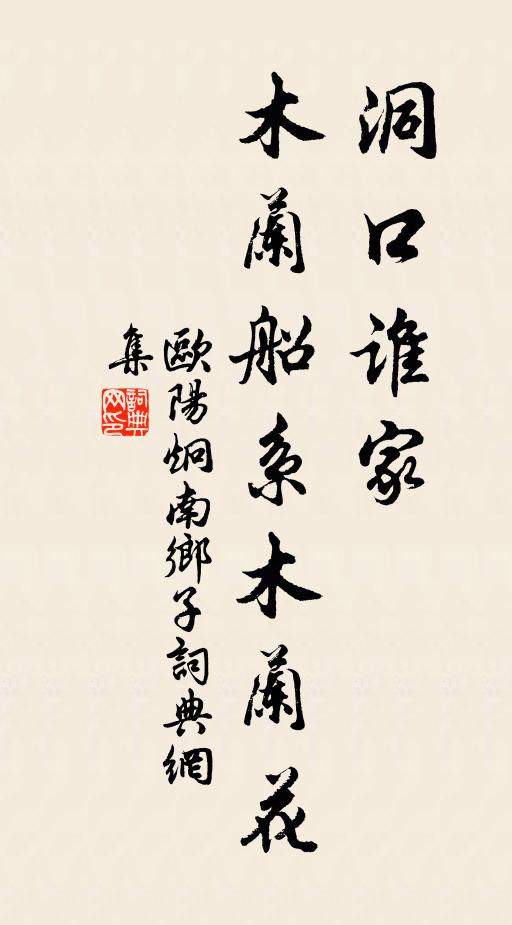 洞口誰家
木蘭船系木蘭花
歐陽炯南鄉子詞典網
集
詞典
网印